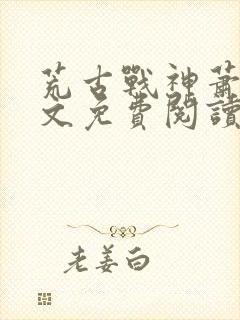 荒古戰神蕭
文免費閱讀
老姜白